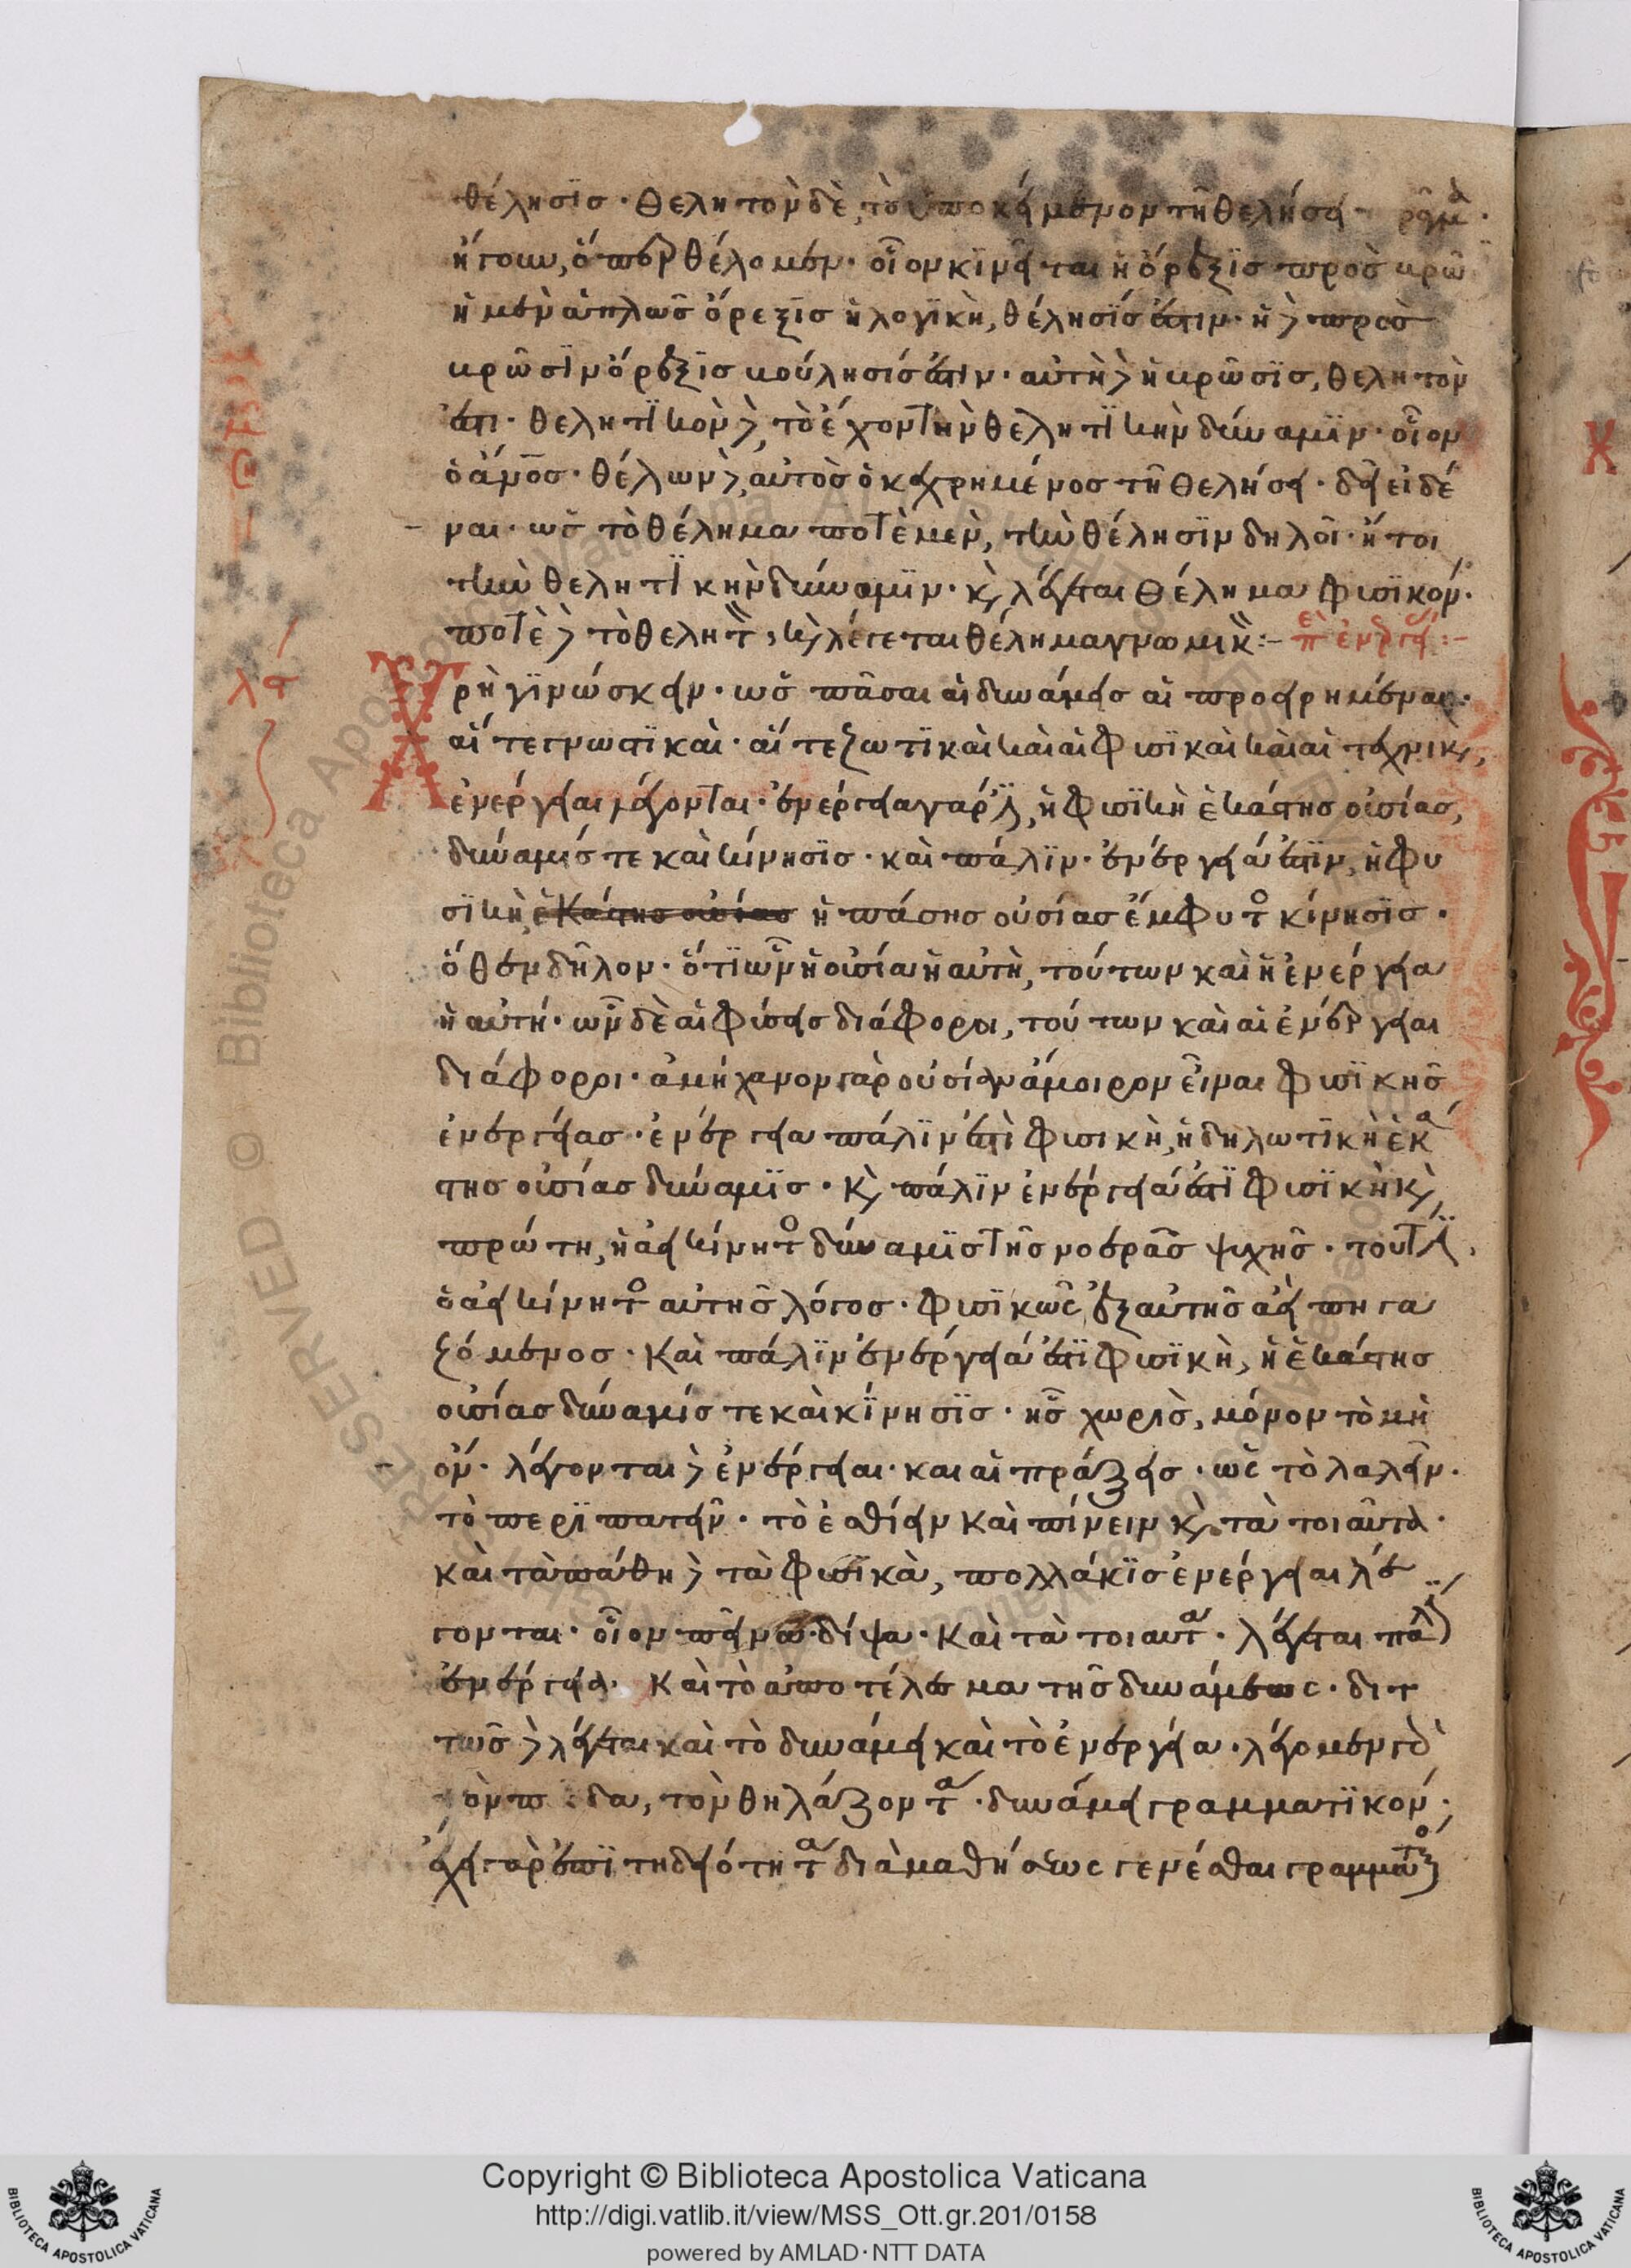 θέλησϊσ · θελητὸν δὲ, τὸ ὑποκείμενον τῆ θελήσει πρᾶγμα ·
ἤγουν, ὅπερ θέλομεν · οἷον κϊνεῖται ἡ ὄρεξϊσ πρὸσ βρῶ
ἡ μὲν ἁπλῶσ ὄρεξϊσ ἡ λογϊκὴ, θέλησϊσ ἐστιν · ἡ δὲ πρὸσ
βρῶσϊν ὄρεξϊσ βούλησισ ἐστιν · αὐτὴ δὲ ἡ βρῶσϊσ, θελητὸν
ἐστι · θελητϊκὸν δὲ, τὸ ἔχον τὴν θελητϊκὴν δύναμϊν · οἷον
ὁ ἄνοσ · θέλων δὲ, αὐτὸσ ὁ κεχρημένοσ τῆ θελήσει · δεῖ εἰδέ
ναι · ὡσ τὸ θέλημα ποτὲ μὲν, τὴν θέλησϊν δηλοῖ · ἤτοι
τὴν θελητϊκὴν δύναμϊν · κ, λέγεται θέλημα φυσϊκόν ·
ποτὲ δὲ τὸ θελητὸν, κ, λέγεται θέλημα γνωμικὸν :- περὶ ἐνεργείασ :-
λα
Χρὴ γϊνώσκειν · ὡσ πᾶσαι αἱ δυνάμεισ αἱ προειρημέναι ·
αἵ τε γνωστϊκαὶ · αἵ τε ζωτϊκαὶ καὶ αἱ φυσϊκαὶ καὶ αἱ τεχνικαὶ,
ἐνέργειαι λέγονται · ἐνέργεια γάρ ἐστιν, ἡ φυσϊκὴ ἑκάστησ οὐσίασ,
δύναμισ τε καὶ κίνησϊσ · καὶ πάλϊν · ἐνέργειά ἐστϊν, ἡ φυ
σϊκὴ, ἑκάστησ οὐσίασ ἡ πάσησ οὐσίασ ἔμφυτοσ κίνησϊσ ·
ὅθεν δῆλον · ὅτϊ ὧν ἡ οὐσία ἡ αὐτὴ, τούτων καὶ ἡ ἐνέργεια
ἡ αὐτή · ὧν δὲ αἱ φύσεισ διάφοροι, τούτων καὶ αἱ ἐνέργειαι
διάφοροι · ἀμήχανον γὰρ οὐσίαν ἄμοιρον εἶναι φυσϊκῆσ
ἐνεργείασ · ἐνέργεια πάλϊν ἐστὶ φυσικὴ, ἡ δηλωτϊκὴ ἑκά
στησ οὐσίασ δύναμϊσ · κ, πάλϊν ἐνέργειά ἐστϊ φυσϊκὴ κ,
πρώτη, ἡ ἀεικίνητοσ δύναμϊσ τῆσ νοερᾶσ ψυχῆσ · τουτέστιν,
ὁ ἀεικίνητοσ αὐτῆσ λόγοσ · φυσϊκῶσ ἐξ αὐτῆσ ἀεὶ πηγα
ζόμενοσ · καὶ πάλϊν ἐνέργειά ἐστϊ φυσϊκὴ, ἡ ἑκάστησ
οὐσίασ δύναμίσ τε καὶ κΐνησϊσ · ἧσ χωρὶσ, μόνον τὸ μὴ
ὄν · λέγονται δὲ ἐνέργειαι · και αἱ πράξεισ · ὡσ τὸ λαλεῖν ·
τὸ περϊπατεῖν · τὸ ἐσθίειν καὶ πίνειν κ, τὰ τοιαῦτα ·
καὶ τὰ πάθη δὲ τὰ φυσϊκὰ, πολλάκϊσ ἐνέργειαι λέ
γονται · οἷον πεῖνα · δίψα · καὶ τὰ τοιαῦτα · λέγεται πάλιν
ἐνέργεια · καὶ τὸ ἀποτέλεσμα τῆσ δυνάμεωσ · διτ
τῶσ δὲ λέγεται καὶ τὸ δυνάμει καὶ τὸ ἐνεργεία · λέγομεν γὰρ
τὸν παῖδα, τὸν θηλάζοντα · δυνάμει γραμματϊκόν ·
ἔχει γὰρ ἐπϊτηδειότητα διὰ μαθήσεωσ γενέσθαι γραμματικὸσ